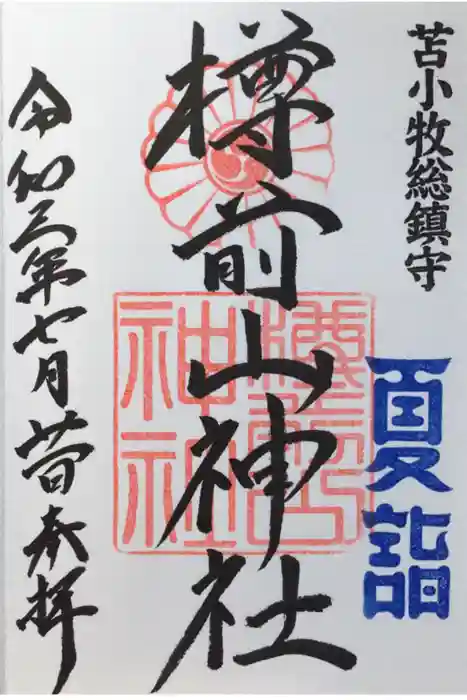 苫小牧総鎮守
夏詣
樽前山神社
樽前山神社
令和三年七月廿四日奉拝